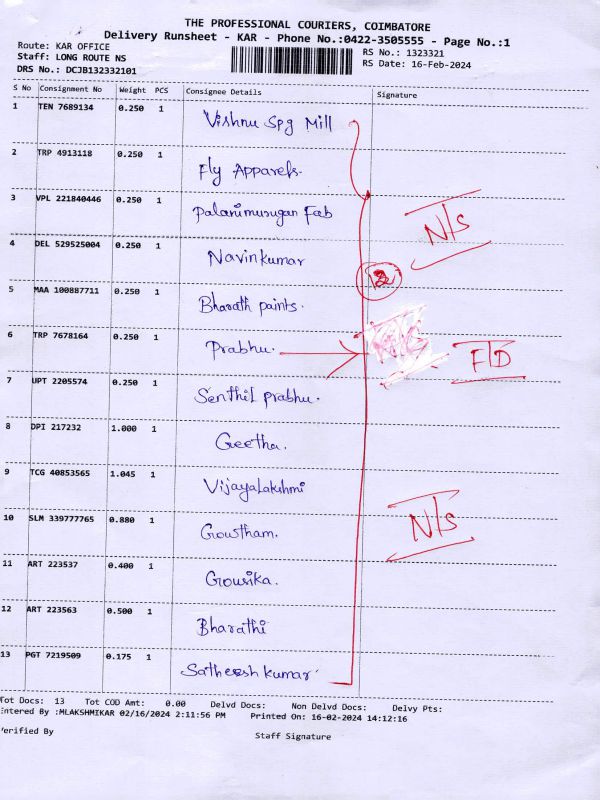 THE PROFESSIONAL COURIERS, COIMBATORE
Delivery Runsheet - KAR - Phone No.:0422-3505555 - Page No.:1
Route: KAR OFFICE
RS No.: 1323321
Staff: LONG ROUTE NS
RS Date: 16-Feb-2024
DRS No.: DCJB132332101
S No Consignment No Weight PCS Consignee Details Signature
1 TEN 7689134 0.250 1 Vishnu Spg Mill
2 TRP 4913118 0.250 1 Fly Apparels.
3 VPL 221840446 0.250 1 Palanimurugan Fab
N/S
4 DEL 529525004 0.250 1 Navinkumar
5 MAA 100887711 0.250 1 Bharath paints.
6 TRP 7678164 0.250 1 Prabhu.
F/D
7 UPT 2205574 0.250 1 Senthil prabhu.
8 DPI 217232 1.000 1 Geetha.
9 TCG 40853565 1.045 1 Vijayalakshmi
10 SLM 339777765 0.880 1 Gowtham.
N/S
11 ART 223537 0.400 1 Gousika.
12 ART 223563 0.500 1 Bharathi
13 PGT 7219509 0.175 1 Satheesh kumar
Tot Docs: 13 Tot COD Amt: 0.00 Delvd Docs: Non Delvd Docs: Delvy Pts:
Entered By :MLAKSHMIKAR 02/16/2024 2:11:56 PM Printed On: 16-02-2024 14:12:16
Verified By
Staff Signature